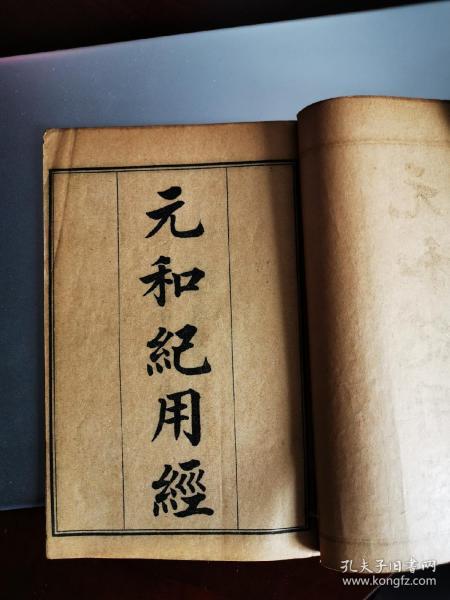 元和紀用經
孔夫子旧书网
www.kongfz.com